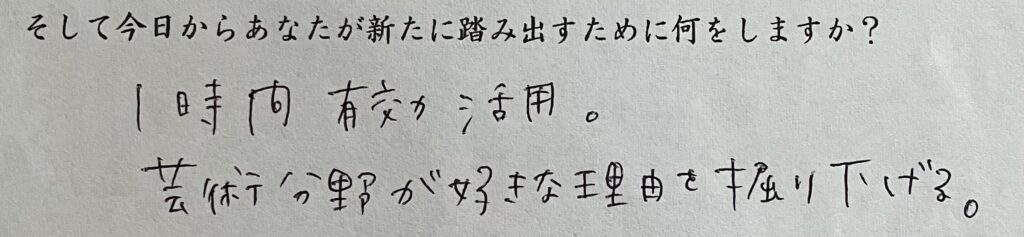 そして今日からあなたが新たに踏み出すために何をしますか？
1時間 有効活用。
芸術分野が好きな理由を掘り下げる。